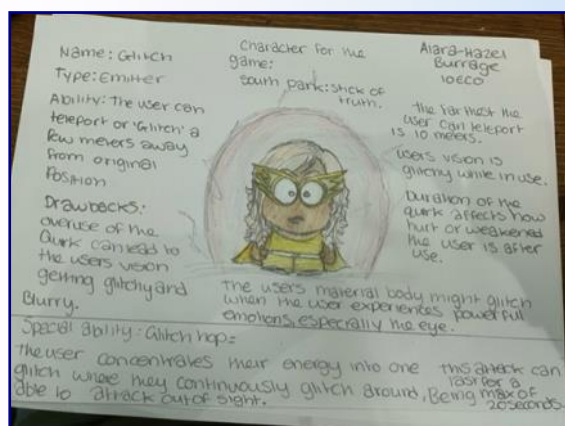 Name: Glitch
Type: Emitter
Ability: The user can
teleport or 'Glitch' a
few meters away
from original
Position
Drawbacks:
overuse of the
Quirk can lead to
the users vision
getting glitchy and
Blurry.
Character for the
game:
South park: stick of
truth.
Alara-Hazel
Burrage
10ECO
the farthest the
user can teleport
is 10 meters.
users vision is
glitchy while in use.
Duration of the
quirk affects how
hurt or weakened
the user is after
use.
The users material body might glitch
when the user experiences powerful
emotions, especially the eye.
Special ability: Glitch hop:
the user concentrates their energy into one
glitch where they continuously glitch around, Being
able to attack out of sight.
this attack can
last for a
max of
20 seconds.